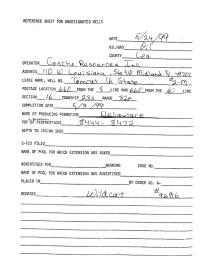 REFERENCE SHEET FOR UNDESIGNATED WELLS
DATE 5/24/99
OIL/GAS Oil
COUNTY Lea
OPERATOR Concho Resources Inc
ADDRESS 110 W Louisiana, Ste 410 Midland Tx 79701
LEASE NAME, WELL NO. Tomcat 16 State 2-M
FOOTAGE LOCATION 660 FROM THE S LINE AND 660 FROM THE W LINE
SECTION 16 TOWNSHIP 23S RANGE 32E
COMPLETION DATE 5/3/99
NAME OF PRODUCING FORMATION Delaware
TOP OF PERFORATIONS 8444-8472
DEPTH TO CASING SHOE
C-123 FILED
NAME OF POOL FOR WHICH EXTENSION WAS ASKED
ADVERTISED FOR HEARING CASE NO.
NAME OF POOL FOR WHICH EXTENSION WAS ADVERTISED
PLACED IN BY ORDER NO. R-
REMARKS Wildcat #96916